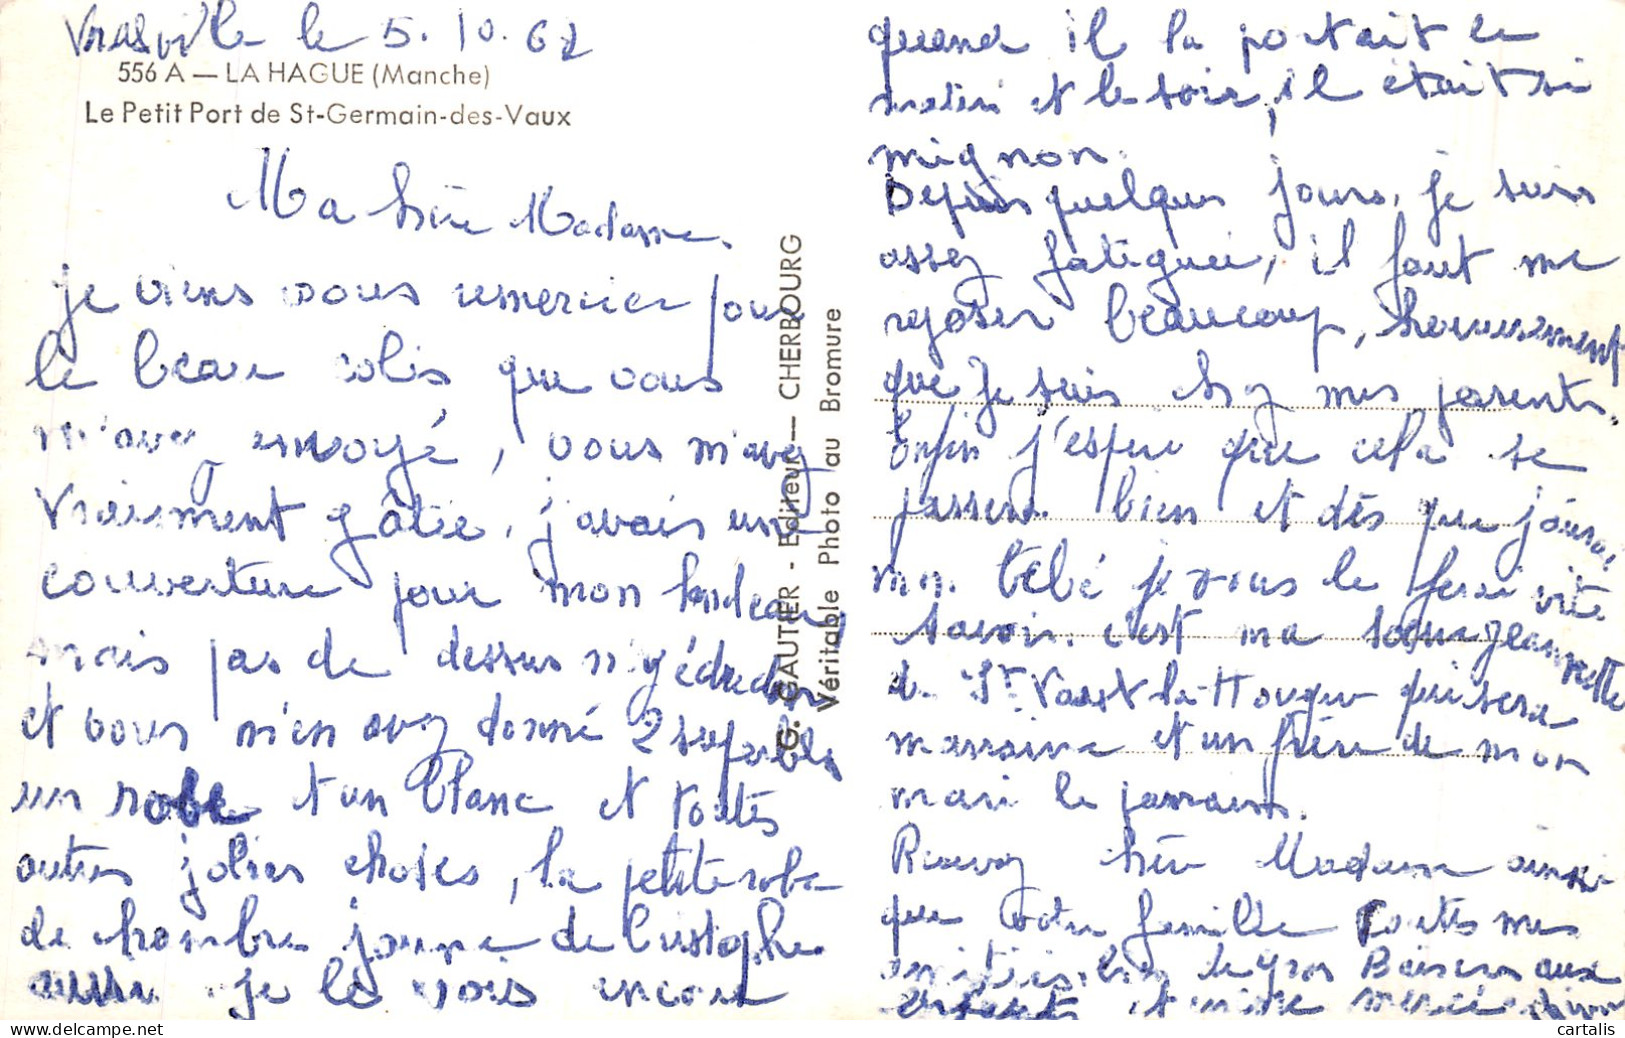 Vrasville le 5.10.62
556 A — LA HAGUE (Manche)
Le Petit Port de St-Germain-des-Vaux
Ma chère Madame.
je viens vous remercier pour
le beau colis que vous
m'avez envoyé, vous m'avez
vraiment gâtée, j'avais une
couverture pour mon landeau,
mais pas de dessus ni d'édredon
et vous m'en avez donné 2 superbes
un rose et un blanc et toutes
autres jolies choses, la petite robe
de chambre jaune de Cristophe
aussi je le vois encore
G. GAUTIER - Editeur — CHERBOURG
Véritable Photo au Bromure
quand il la portait le
matin et le soir, il était si
mignon.
Depuis quelques jours, je suis
assez fatiguée, il faut me
reposer beaucoup, heureusement
que je suis chez mes parents.
Enfin j'espère que cela se
passera bien et dès que j'aurai
mon bébé je vous le ferai vite
savoir. c'est ma soeur Jeannette
de St Vaast la Hougue qui sera
marraine et un frère de mon
mari le parrain.
Recevez chère Madame ainsi
que votre famille toutes mes
amitiés. bien de gros Baisers aux
enfants et mille merci
cartalis
www.delcampe.net